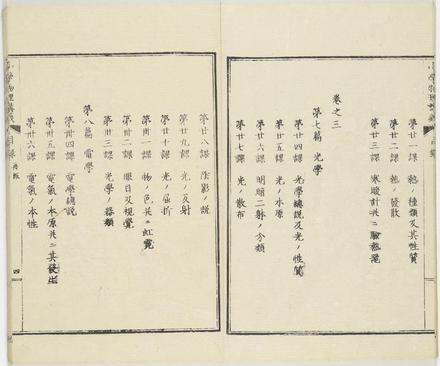 第廿一課 熱ノ種類及其性質
第廿二課 熱ノ發散
第廿三課 寒暖計共ニ驗熱器
卷之三
第七篇 光學
第廿四課 光學總説及光ノ性質
第廿五課 光ノ本原
第廿六課 明暗二射ノ分類
第廿七課 光ノ散布
第廿八課 陰影ノ説
第廿九課 光ノ反射
第卅課 光ノ屈折
第卅一課 物ノ色共ニ虹霓
第卅二課 眼目及視覺
第卅三課 光學ノ器類
第八篇 電學
第卅四課 電學總説
第卅五課 電氣ノ本原共ニ其發生
第卅六課 電氣ノ本性
四